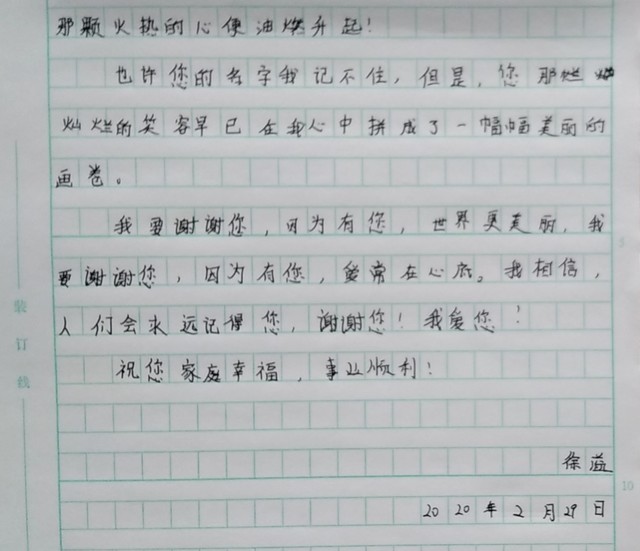 那颗火热的心便油燃升起！
也许您的名字我记不住，但是，您那烂
灿烂的笑容早已在我心中拼成了一幅幅美丽的
画卷。
我要谢谢您，因为有您，世界更美丽，我
要谢谢您，因为有您，爱常在心底。我相信，
人们会永远记得您，谢谢您！我爱您！
祝您家庭幸福，事业顺利！
徐溢
2020年2月29日
装订线
10